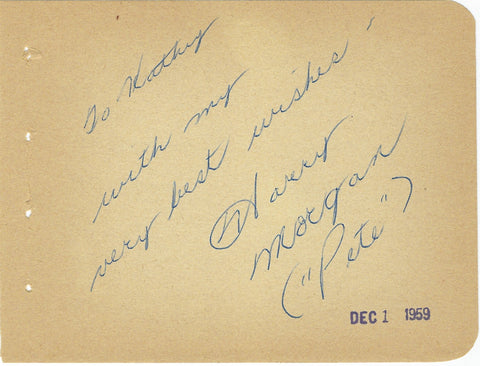 To Kathy
with my
very best wishes
Harry
Morgan
("Pete")
DEC 1 1959